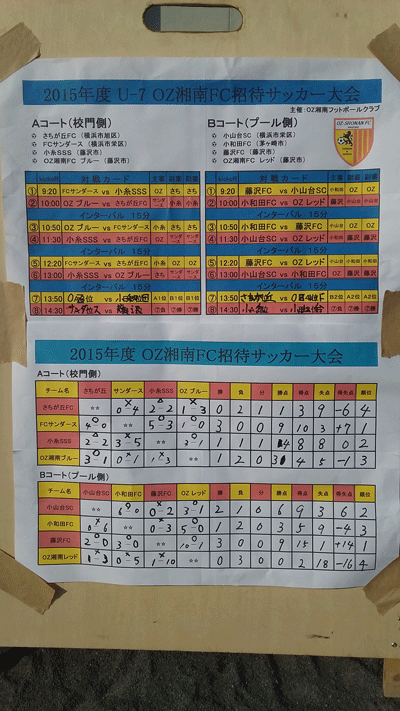 2015年度 U-7 OZ湘南FC招待サッカー大会
主催：OZ湘南フットボールクラブ
Aコート(校門側)
さちが丘FC (横浜市旭区)
FCサンダース (横浜市栄区)
小糸SSS (藤沢市)
OZ湘南FC ブルー (藤沢市)
Bコート(プール側)
小山台SC (横浜市栄区)
小和田FC (茅ヶ崎市)
藤沢FC (藤沢市)
OZ湘南FC レッド (藤沢市)
OZ-SHONAN FC
kickoff 対戦カード 主審 副審 副審
① 9:20 FCサンダース vs 小糸SSS OZ さち さち
② 10:00 OZ ブルー vs さちが丘FC 小糸 小糸
インターバル 15分
③ 10:50 小糸SSS
④ 11:30
インターバル 15分
⑤ 12:20
⑥ 13:00 小糸SSS vs OZ ブルー さち
インターバル 15分
⑦ 13:50 A1位 B1位 B1位
⑧ 14:30 ⑦負 ⑦勝 ⑦勝
kickoff 対戦カード 主審 副審 副審
① 9:20 藤沢FC vs 小山台SC 小和田 OZ OZ
② 10:00 小和田FC vs OZ レッド 藤沢 小山台 小山台
インターバル 15分
③ 10:50 OZ
④ 11:30 小山台SC vs OZ レッド 小和田 藤沢 藤沢
インターバル 15分
⑤ 12:20 藤沢FC vs OZ レッド
⑥ 13:00 小山台SC vs 小和田FC OZ 藤沢 藤沢
インターバル 15分
⑦ 13:50 B2位 A2位 A2位
⑧ 14:30 ⑦負 ⑦勝 ⑦勝
2015年度 OZ湘南FC招待サッカー大会
Aコート(校門側)
チーム名 さちが丘 サンダース 小糸SSS OZ ブルー 勝 負 分 勝点 得点 失点 得失点 順位
さちが丘FC ☆☆ 0-4 2-2 1-3 0 2 1 1 3 9 -6 4
FCサンダース 4-0 ☆☆ 5-3 1-0 3 0 0 9 10 3 +7 1
小糸SSS 2-2 3-5 ☆☆ 3-1 1 1 1 4 8 8 0 2
OZ湘南ブルー 3-1 0-1 1-3 ☆☆ 1 2 0 3 4 5 -1 3
Bコート(プール側)
チーム名 小山台SC 小和田FC 藤沢FC OZ レッド 勝 負 分 勝点 得点 失点 得失点 順位
小山台SC ☆☆ 6-0 0-2 3-1 2 1 0 6 9 3 6 2
小和田FC 0-6 ☆☆ 0-3 5-0 1 2 0 3 5 9 -4 3
藤沢FC 2-0 3-0 ☆☆ 10-1 3 0 0 9 15 1 +14 1
OZ湘南レッド 1-3 0-5 1-10 ☆☆ 0 3 0 0 2 18 -16 4